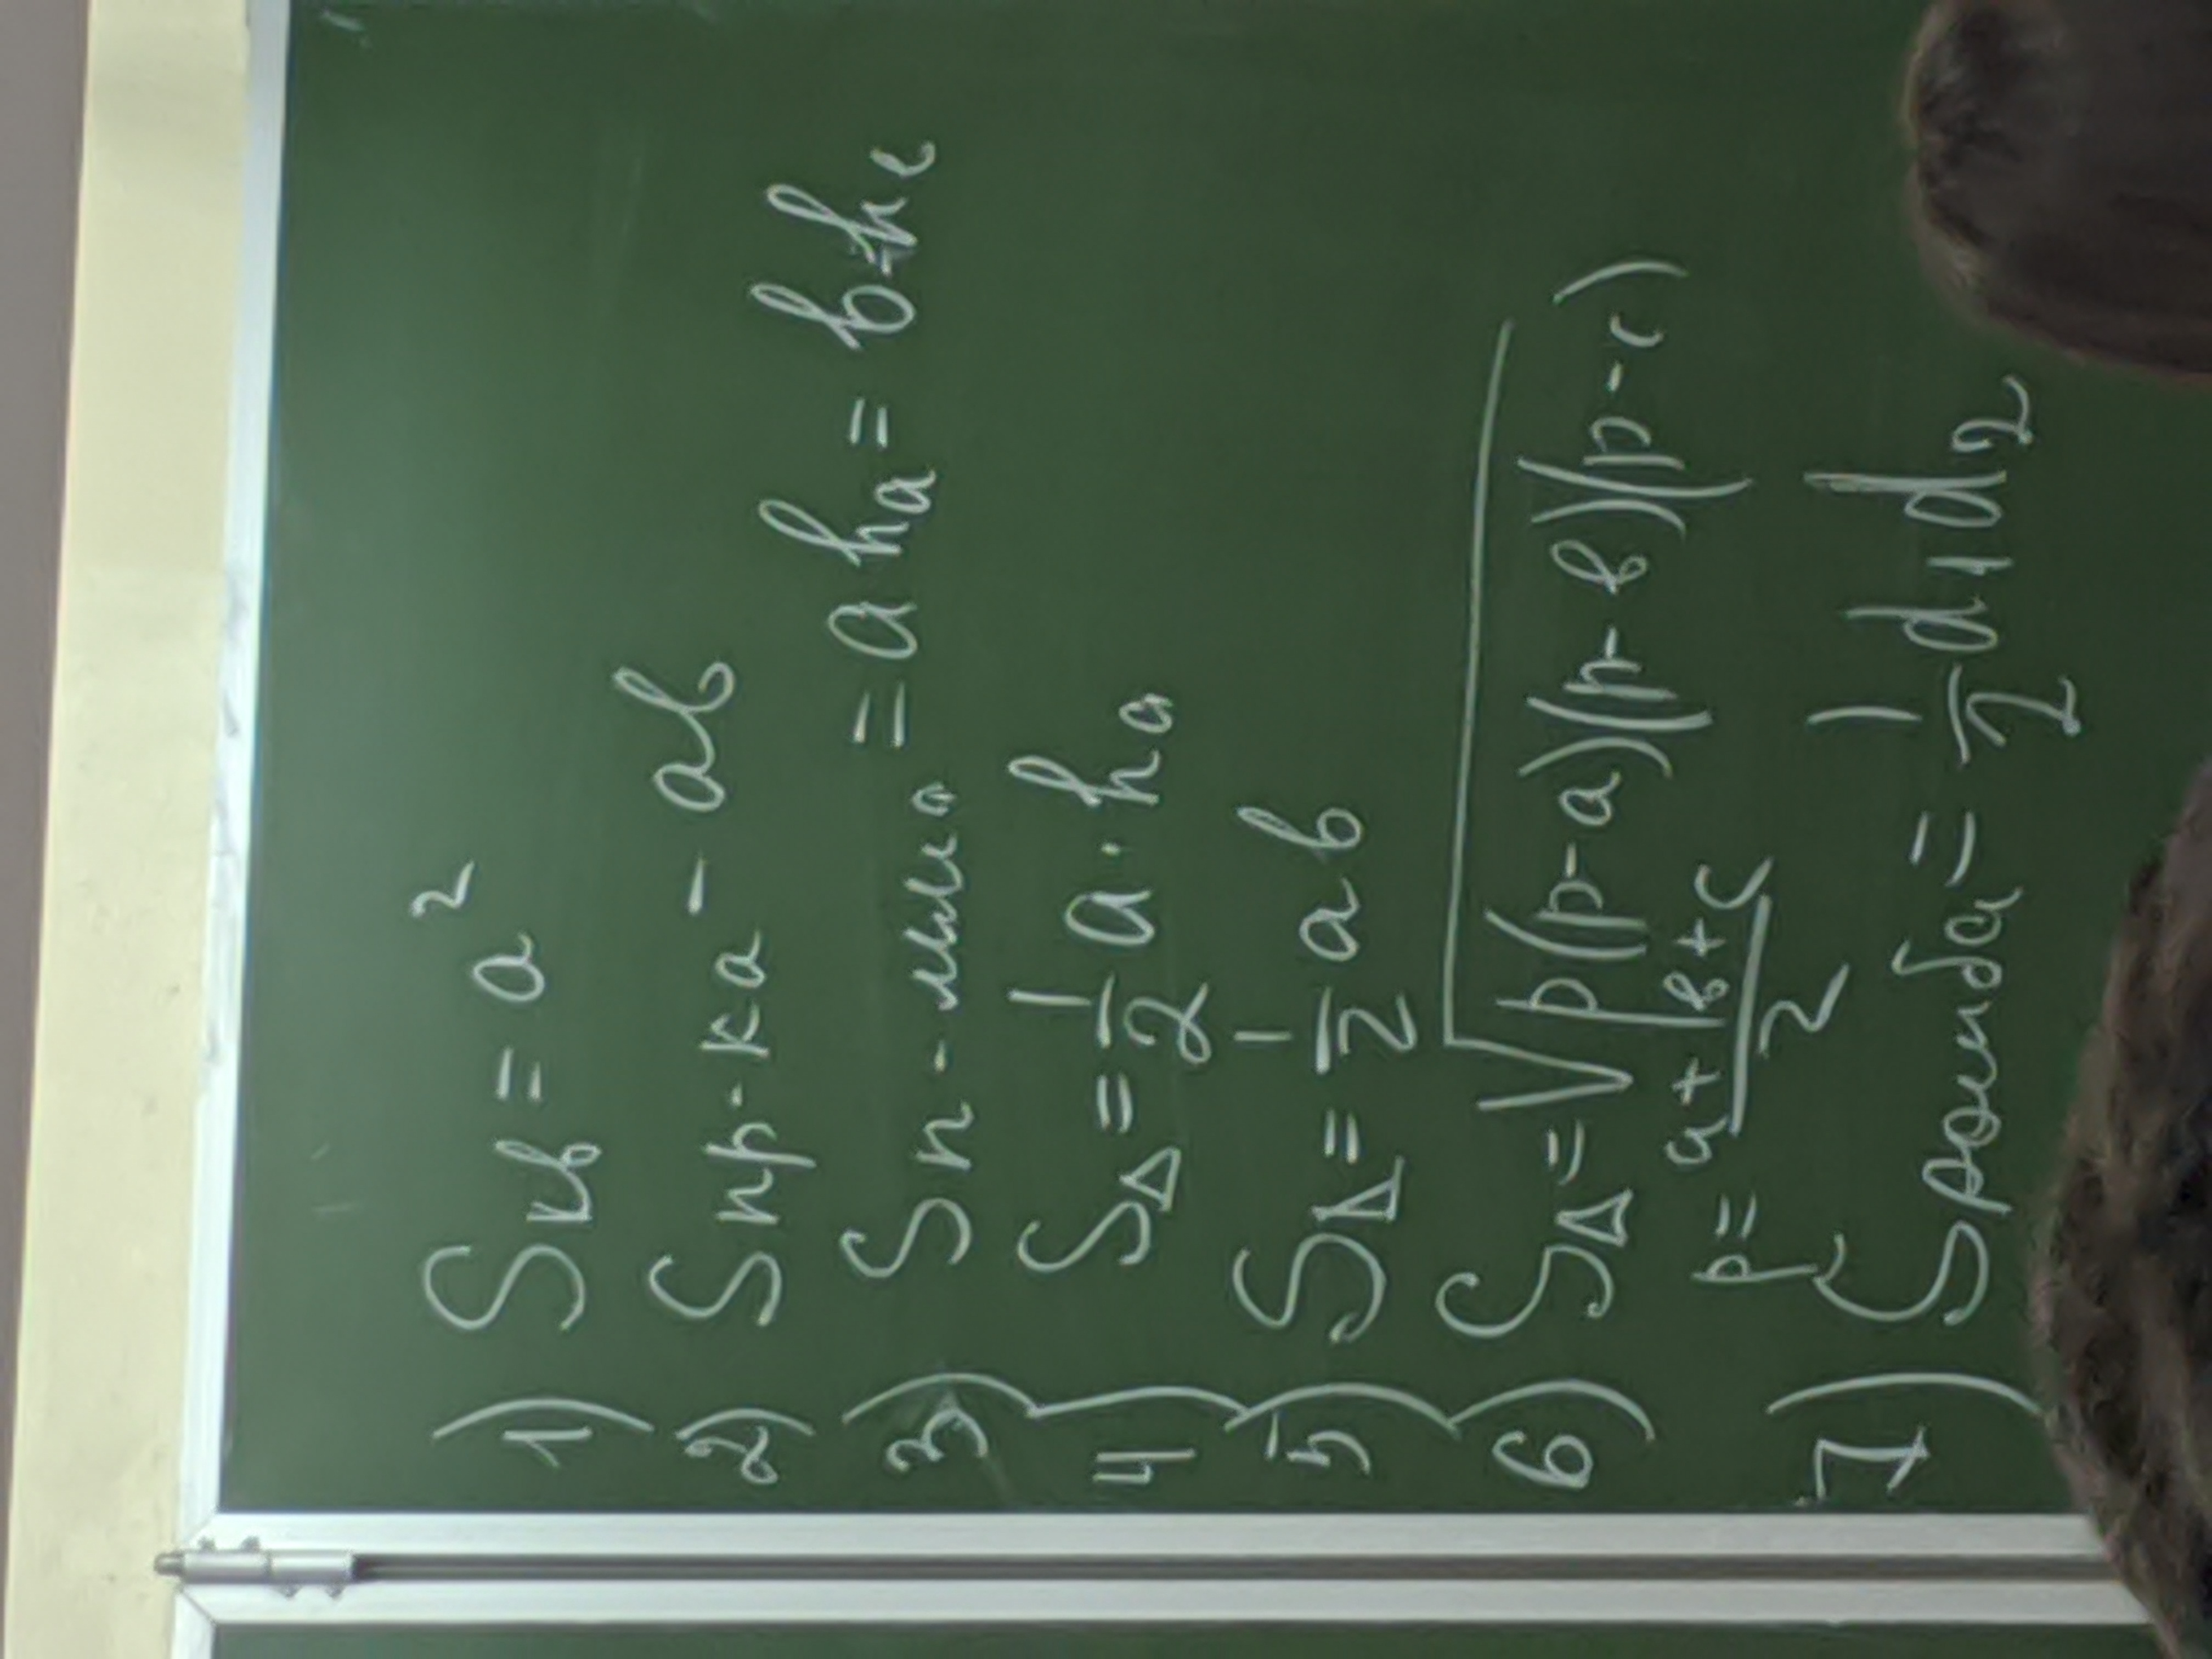 1) Sкв = a²
2) Sпр-ка - ab
3) Sп-мма = a hₐ = b·hc
4) S△ = 1/2 a · hₐ
5) S△ = 1/2 ab
6) S△ = √p(p-a)(p-b)(p-c)
p = a+b+c/2
7) Sромба = 1/2 d₁d₂